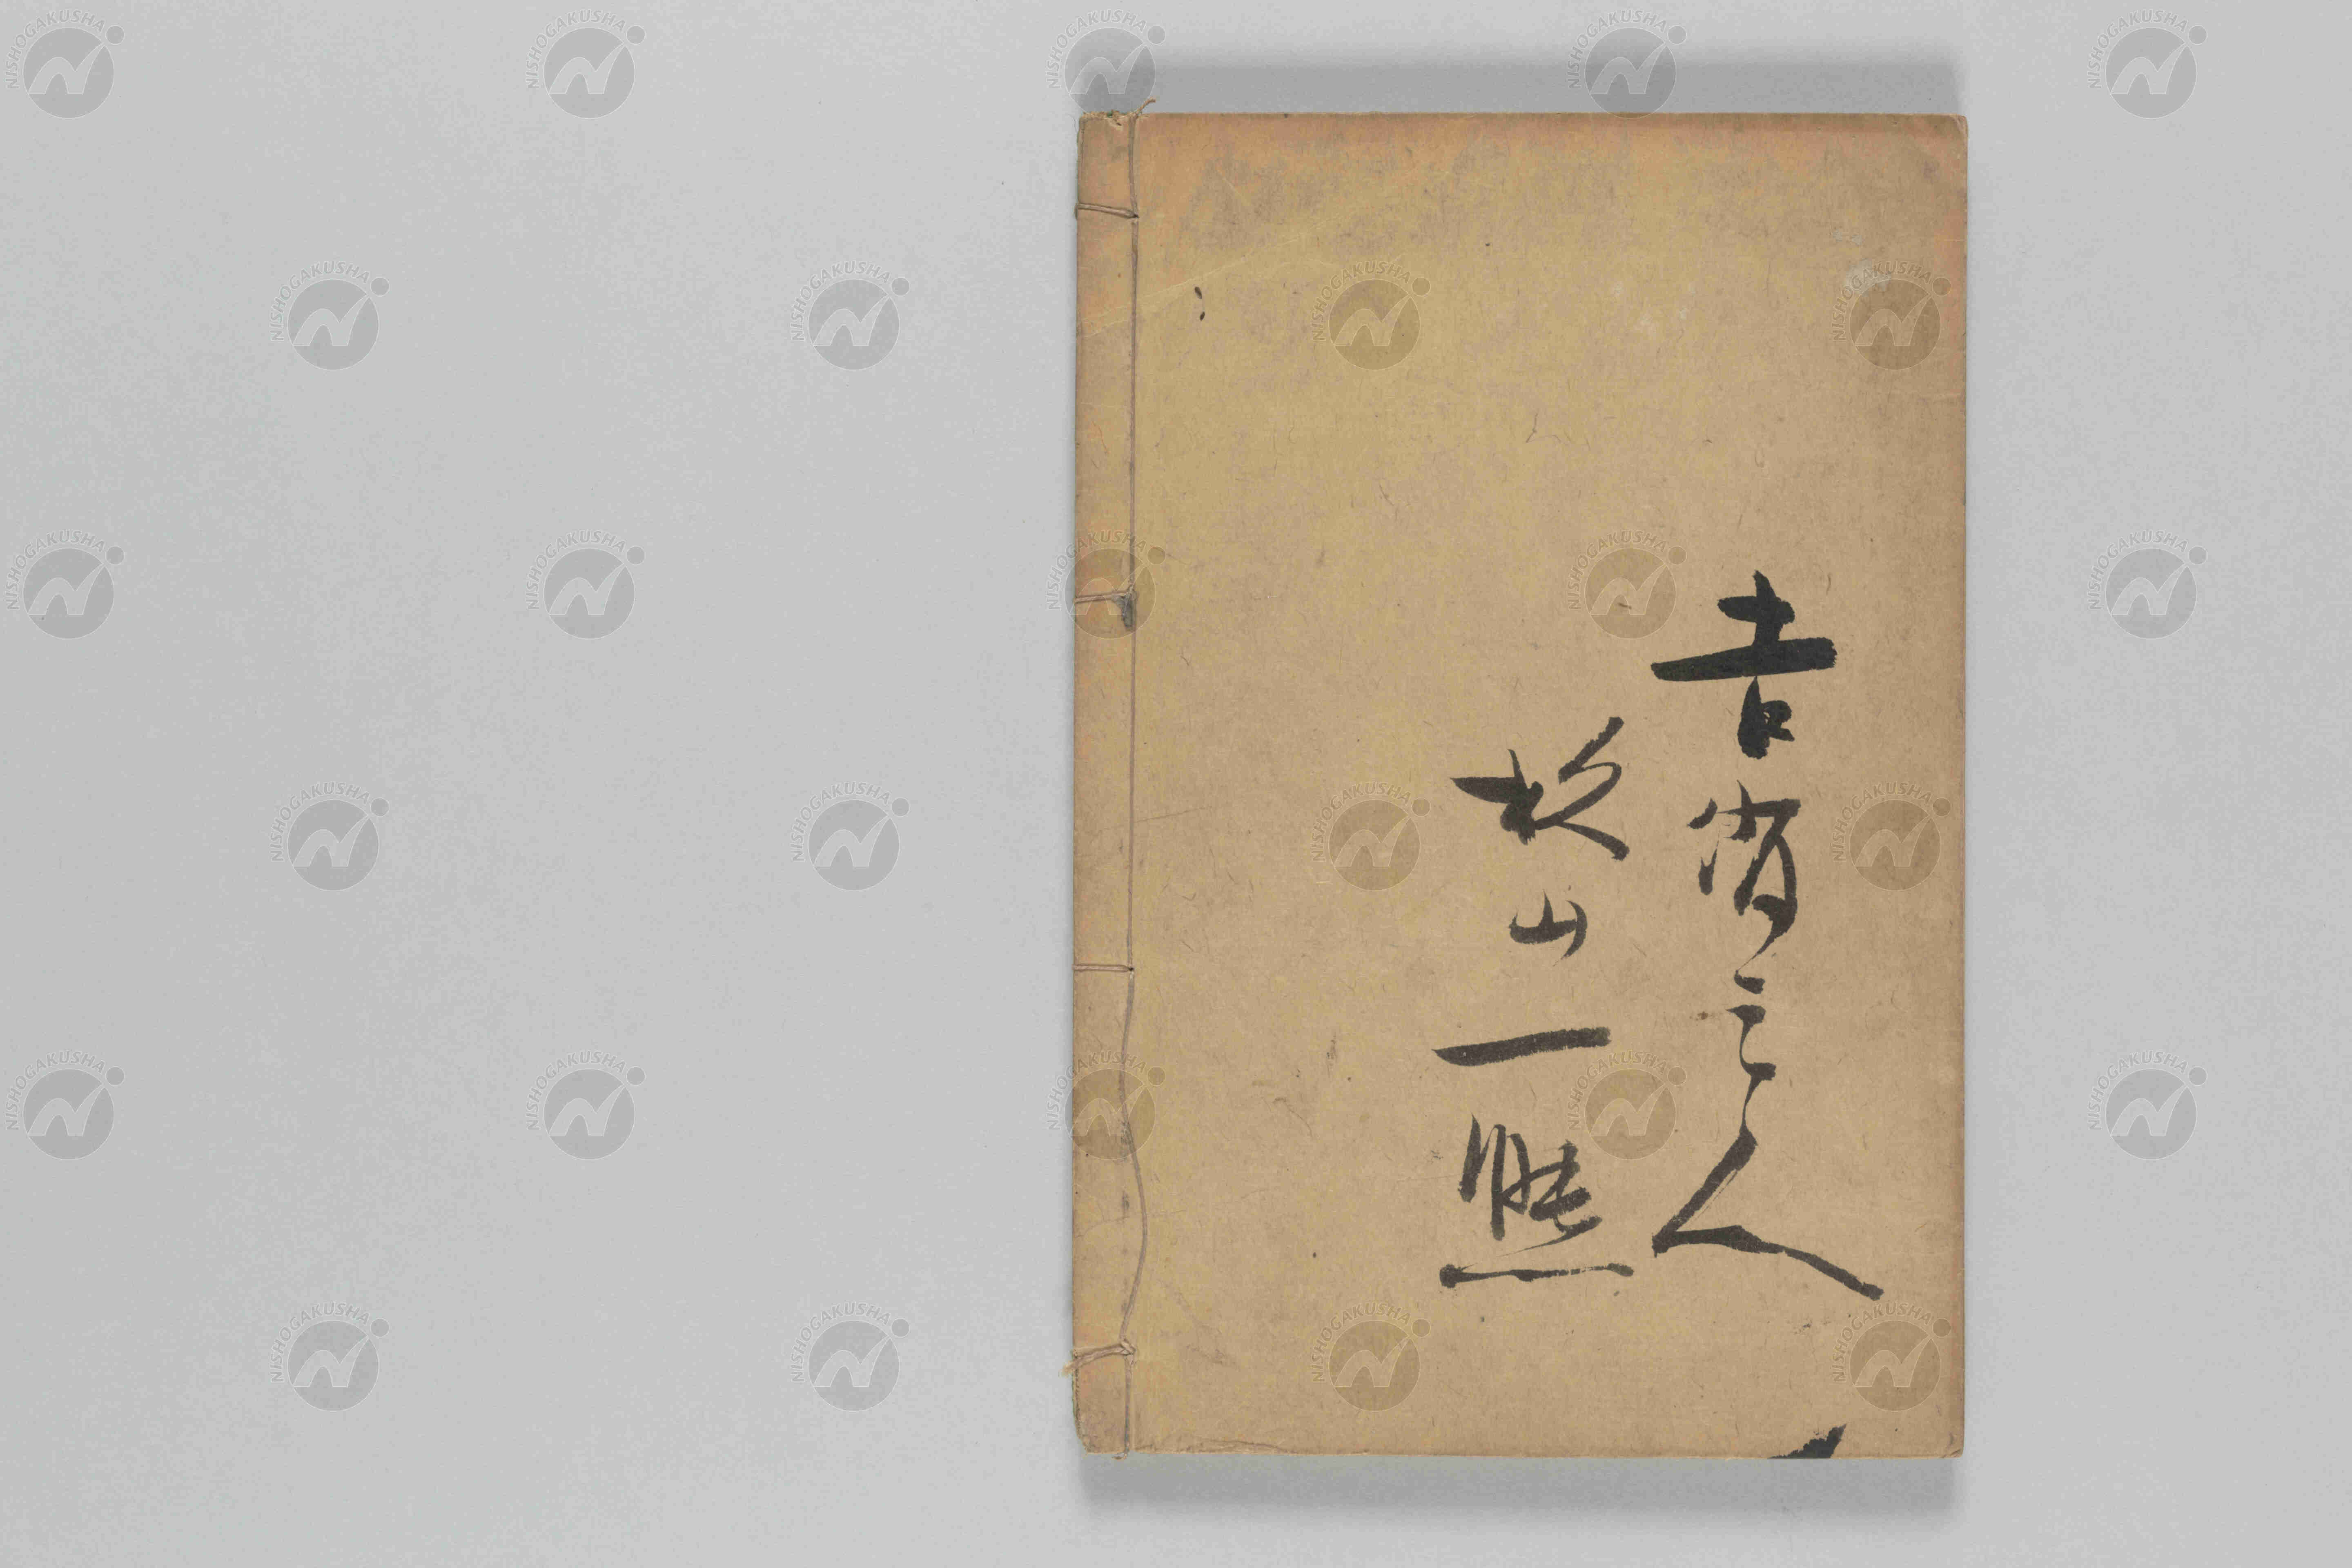 吉
主人
杉山一
NISHOGAKUSHA